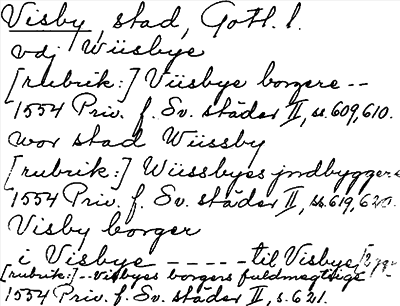 Visby, stad, Gotl. l.
vdj Wüsbye
[rubrik:] Vüsbye borgere --
1554 Priv. f. Sv. städer II, ss. 609, 610.
wor stad Wüssby
[rubrik:] Wüssbyes jndbyggere
1554 Priv. f. Sv. städer II, ss. 619, 620.
Visby borger
i Visbye ----- til Visbye [2 ggr
[rubrik:] -- Visbyes borgers fuldmegtige
1554 Priv. f. Sv. städer II, s. 621.